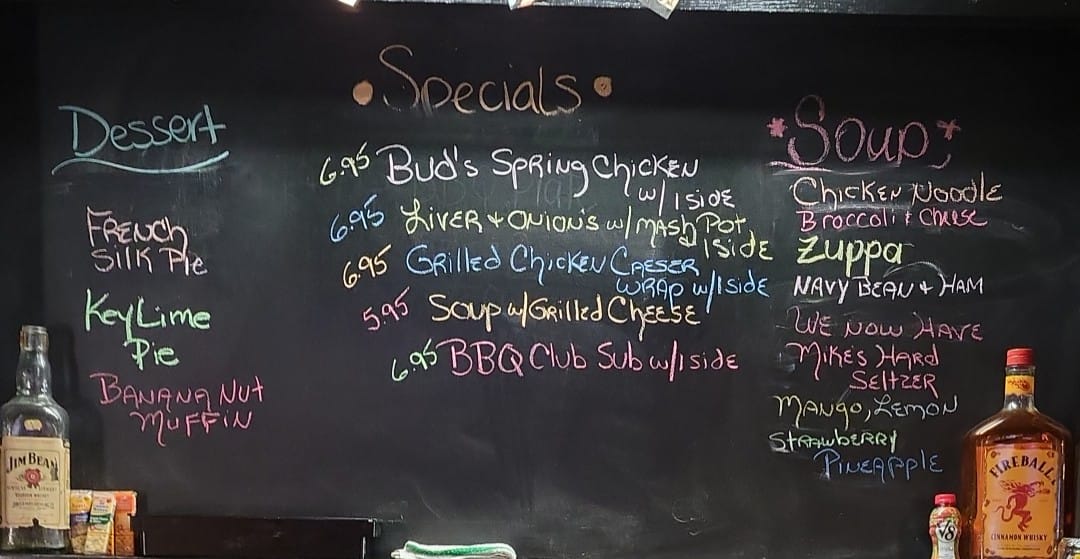 Specials
Dessert
FRENCH
SILK PIE
KEY LIME
PIE
BANANA NUT
MUFFIN
6.95 BUD'S SPRING CHICKEN
w/ 1 SIDE
6.95 LIVER + ONION'S w/ MASH POT
1 SIDE
6.95 GRILLED CHICKEN CAESER
WRAP w/ 1 SIDE
5.95 SOUP w/ GRILLED CHEESE
6.95 BBQ CLUB SUB w/ 1 SIDE
*Soup*
CHICKEN NOODLE
BROCCOLI & CHEESE
ZUPPA
NAVY BEAN & HAM
WE NOW HAVE
MIKES HARD
SELTZER
MANGO, LEMON
STRAWBERRY
PINEAPPLE
JIM BEAM
FIREBALL
CINNAMON WHISKY
V8